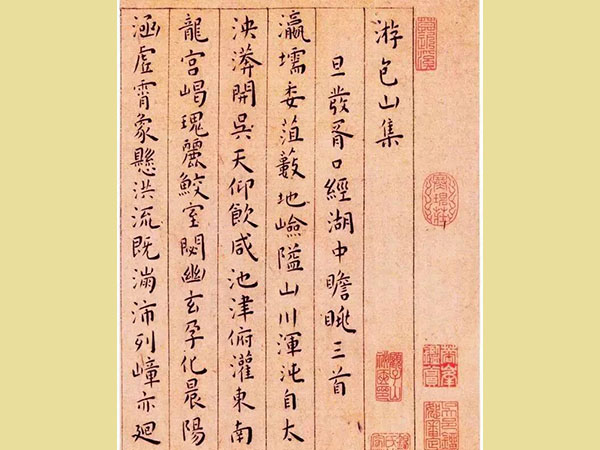 游包山集
旦發胥口經湖中瞻眺三首
瀛壖委菹藪地嶮隘山川渾沌自太
泱漭開吳天仰飲咸池津俯灌東南
龍宮瑰麗鮫室閟幽玄孕化晨陽
涵虛霄象懸洪流既沛列嶂亦廻